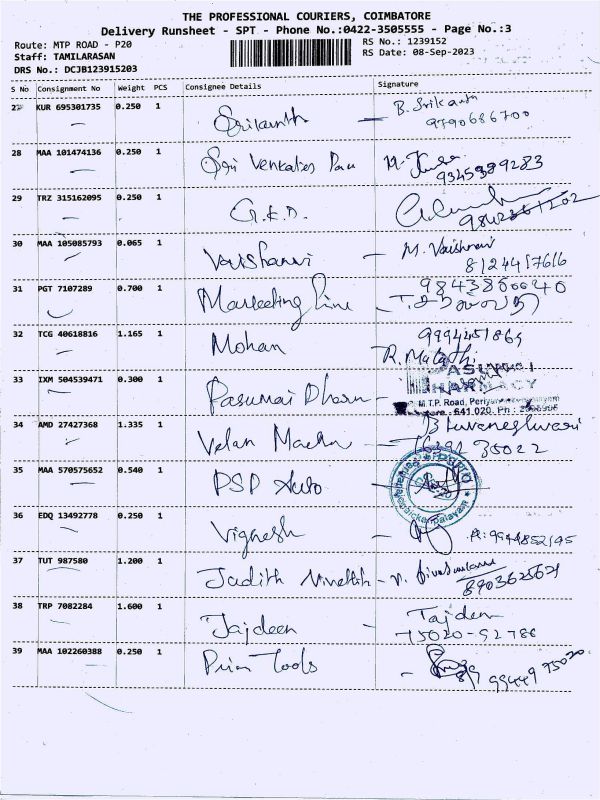 THE PROFESSIONAL COURIERS, COIMBATORE
Delivery Runsheet - SPT - Phone No.:0422-3505555 - Page No.:3
Route: MTP ROAD - P20
Staff: TAMILARASAN
DRS No.: DCJB123915203
RS No.: 1239152
RS Date: 08-Sep-2023
S No Consignment No Weight PCS Consignee Details Signature
27 KUR 695301735 0.250 1 Srikanth - B. Srikanth
9790686700
28 MAA 101474136 0.250 1 Sri Venkates M.
9345989283
29 TRZ 315162095 0.250 1 G.K.D.
30 MAA 105085793 0.065 1 Vaishanvi - M. Vaishnavi
8124417616
31 PGT 7107289 0.700 1 Marketing Line - 9843800040
32 TCG 40618816 1.165 1 Mohan 9994451869
R. Malathi
33 IXM 504539471 0.300 1 Pasumai Dharu - PASUMAI
PHARMACY
M.T.P. Road,
641 020. Ph :
34 AMD 27427368 1.335 1 Velan - Bhuvaneshwari
35022
35 MAA 570575652 0.540 1 PSP Auto -
36 EDQ 13492778 0.250 1 Vignesh - 9944852195
37 TUT 987580 1.200 1 Judith - 8903625621
38 TRP 7082284 1.600 1 Tajdeen - Tajdeen
75020-52786
39 MAA 102260388 0.250 1 Prim Tools - 99449 75020